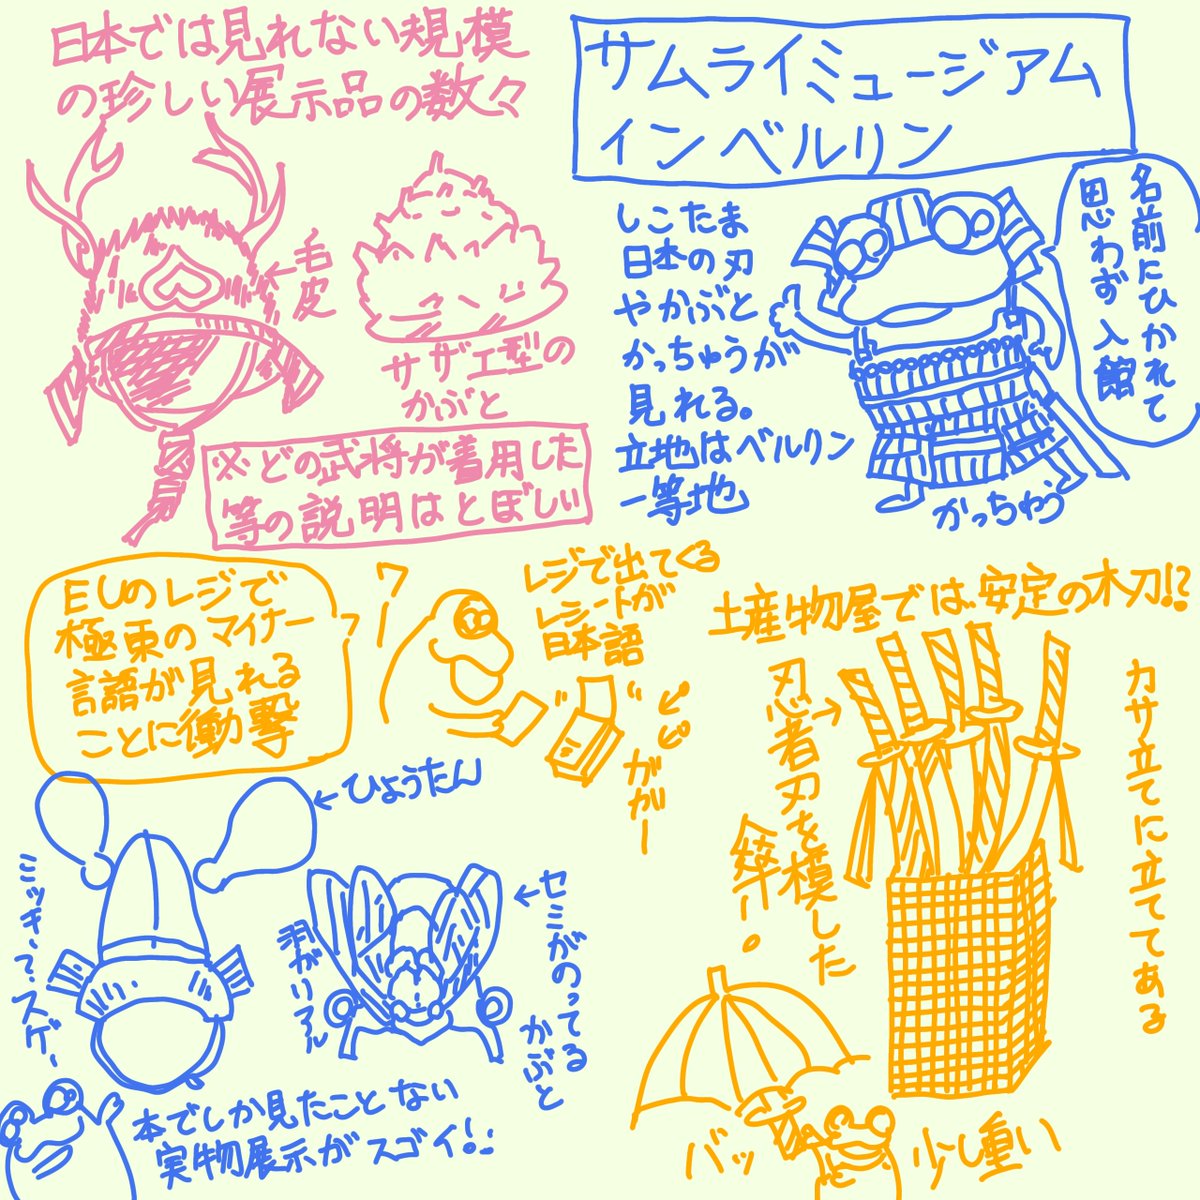 サムライミュージアム
イン ベルリン
名前にひかれて
思わず入館
しこたま
日本の刃
やかぶと
かっちゅうが
見れる。
立地はベルリン
一等地
かっちゅう
日本では見れない規模
の珍しい展示品の数々
←毛皮
サザエ型の
かぶと
※どの武将が着用した
等の説明はとぼしい
EUのレジで
極東のマイナー
言語が見れる
ことに衝撃
ワー
レジで出てくる
レシートが
日本語
ガガー
土産物屋では、安定の木刀!?
カサ立てに立ててある
忍者刃を模した
傘!!。
バッ
少し重い
←ひょうたん
ミッキー?スゲー
←セミがのってる
かぶと
羽がリアル
本でしか見たことない
実物展示がスゴイ!!